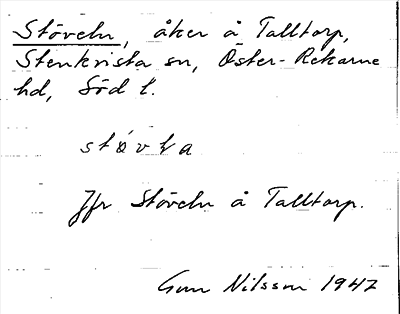 Stöveln, åker å Talltorp,
Stenkvista sn, Öster-Rekarne
hd, Söd l.
stövla
Jfr Stöveln å Talltorp.
Gun Nilsson 1947